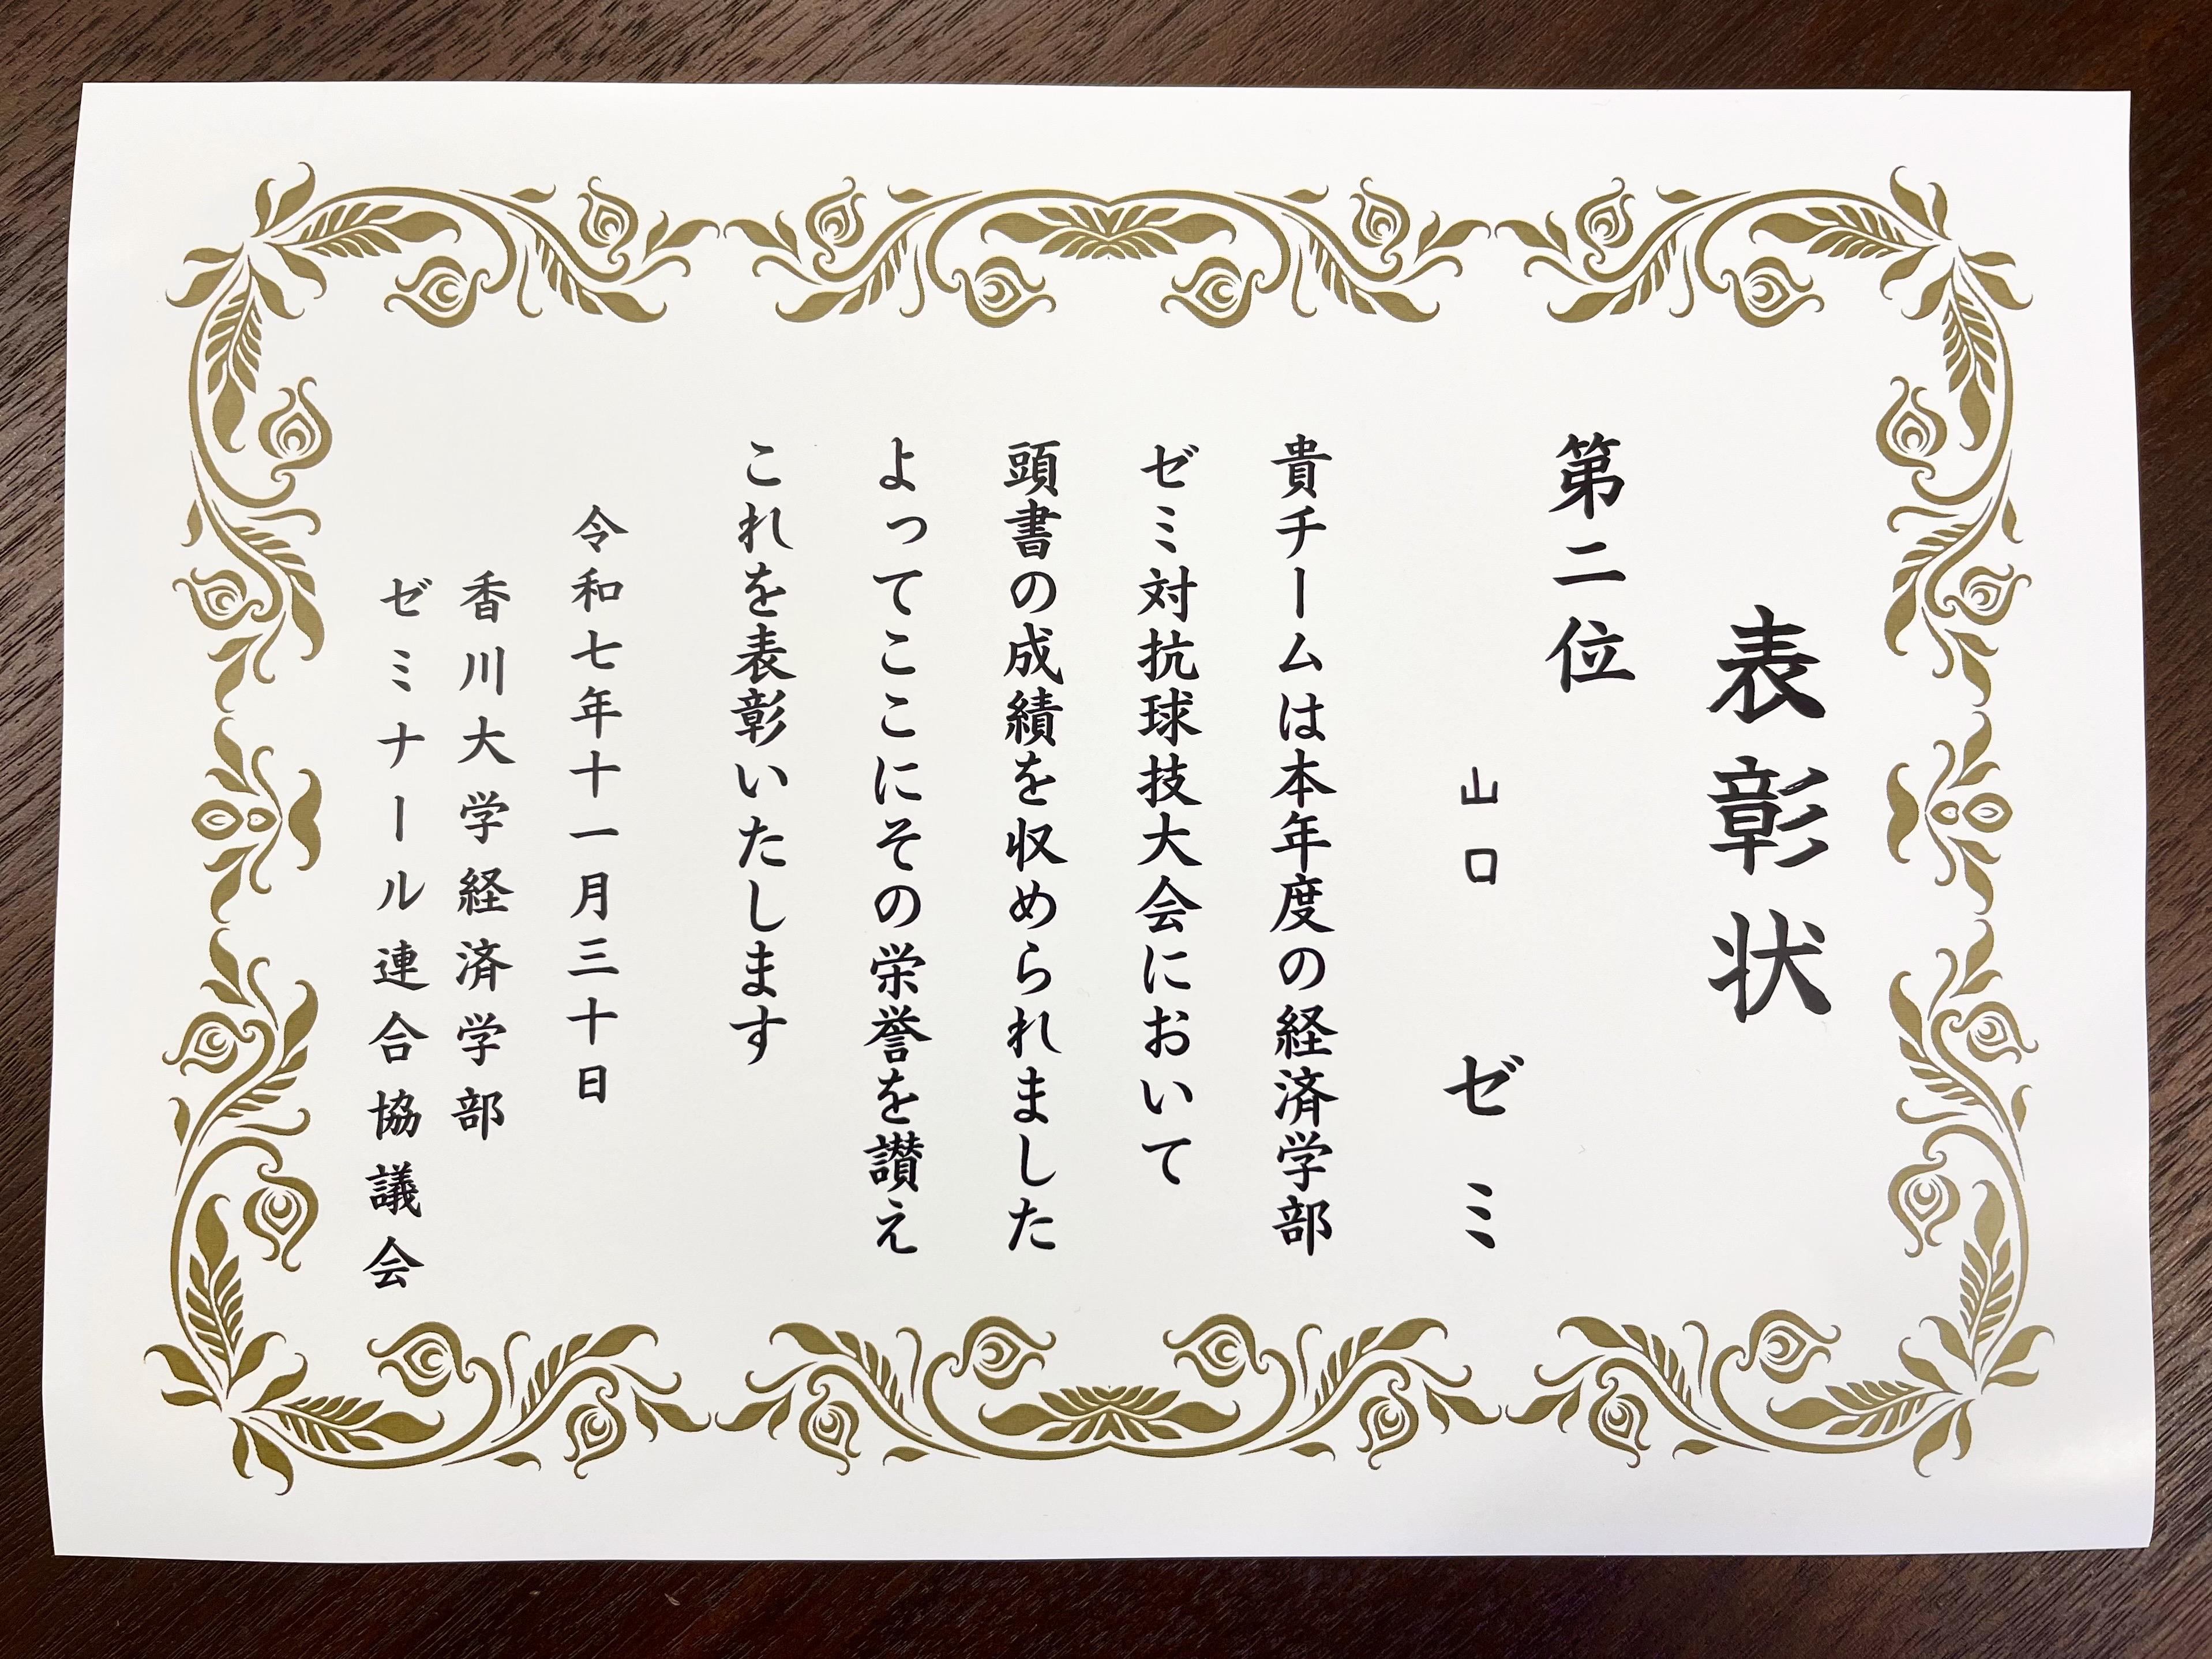 表彰状
第二位
山口 ゼミ
貴チームは本年度の経済学部
ゼミ対抗球技大会において
頭書の成績を収められました
よってここにその栄誉を讃え
これを表彰いたします
令和七年十一月三十日
香川大学経済学部
ゼミナール連合協議会